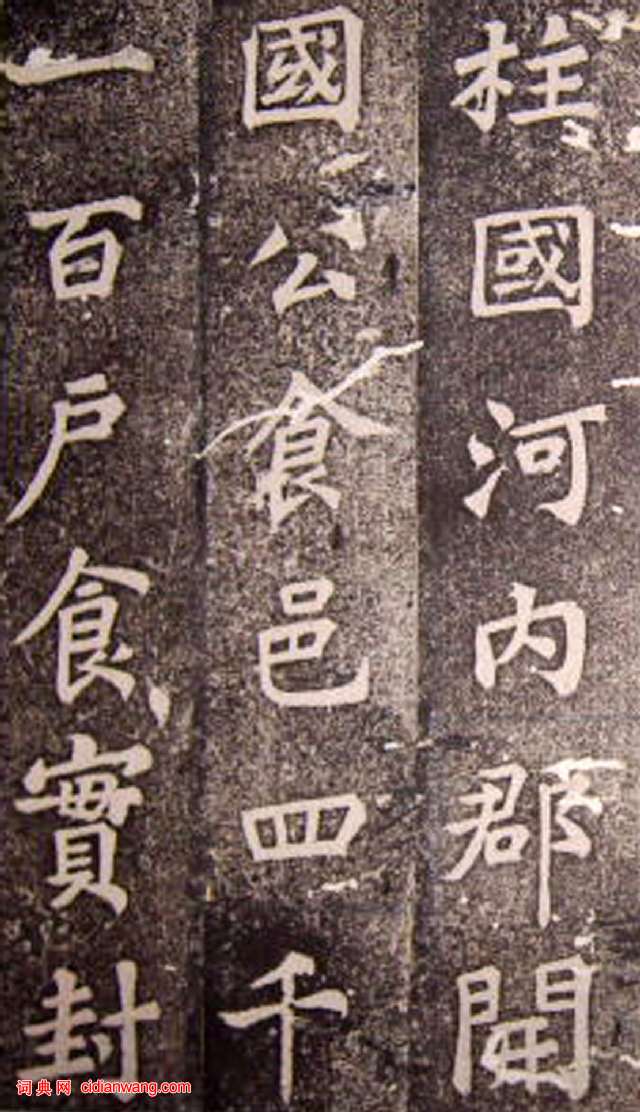 柱國河内郡開
國公食邑四千
一百戶食實封
词典网 cidianwang.com